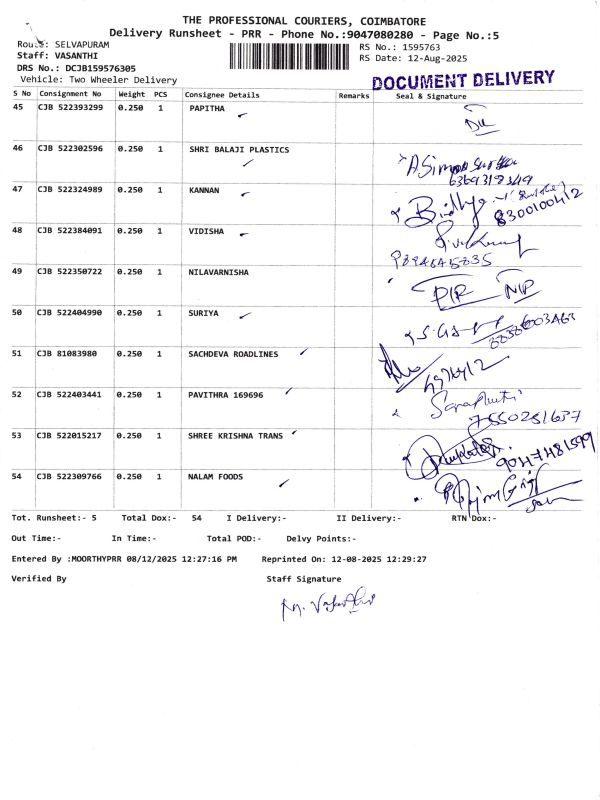 THE PROFESSIONAL COURIERS, COIMBATORE
Delivery Runsheet - PRR - Phone No.:9047080280 - Page No.:5
Route: SELVAPURAM
RS No.: 1595763
Staff: VASANTHI
RS Date: 12-Aug-2025
DRS No.: DCJB159576305
Vehicle: Two Wheeler Delivery
DOCUMENT DELIVERY
S No Consignment No Weight PCS Consignee Details Remarks Seal & Signature
45 CJB 522393299 0.250 1 PAPITHA
46 CJB 522302596 0.250 1 SHRI BALAJI PLASTICS
47 CJB 522324989 0.250 1 KANNAN
Bindhya
8300100412
48 CJB 522384091 0.250 1 VIDISHA
49 CJB 522350722 0.250 1 NILAVARNISHA
50 CJB 522404990 0.250 1 SURIYA
51 CJB 81083980 0.250 1 SACHDEVA ROADLINES
52 CJB 522403441 0.250 1 PAVITHRA 169696
7550251637
53 CJB 522015217 0.250 1 SHREE KRISHNA TRANS
9047481599
54 CJB 522309766 0.250 1 NALAM FOODS
Tot. Runsheet:- 5 Total Dox:- 54 I Delivery:- II Delivery:- RTN Dox:-
Out Time:- In Time:- Total POD:- Delvy Points:-
Entered By :MOORTHYPRR 08/12/2025 12:27:16 PM Reprinted On: 12-08-2025 12:29:27
Verified By Staff Signature
M. Vasanthi